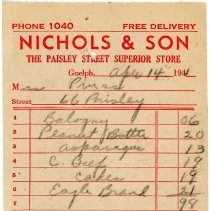 PHONE 1040 FREE DELIVERY
NICHOLS & SON
THE PAISLEY STREET SUPERIOR STORE
Guelph, Apr 14 194
M rs Purss
Street 66 Paisley
1 Balogny 06
2 Peanut Butter 20
3 asparagus 13
4 C. Beef 19
5 Cakes 19
6 Eagle Brand 21
7 98